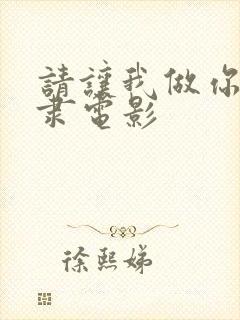 請讓我做你
隶電影
徐熙娣